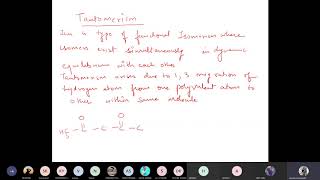 Tautomerism
This is type of functional Isomerism where
isomers exist simultaneously in dynamic
equilibrium with each other
Tautomerism arises due to 1, 3. migration of
hydrogen atom from one polyvalent atom to
other within same molecule
O O
H3C - C - C - C - C